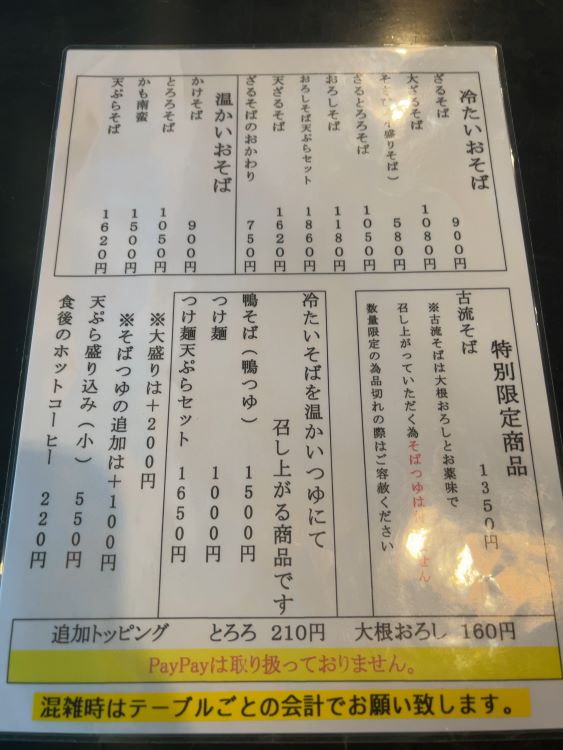 冷たいおそば
ざるそば 900円
大ざるそば 1080円
盛りそば） 580円
ざるとろろそば 1050円
おろしそば 1180円
おろしそば天ぷらセット 1860円
天ざるそば 1620円
ざるそばのおかわり 750円
温かいおそば
かけそば 900円
とろろそば 1050円
かも南蛮 1500円
天ぷらそば 1620円
特別限定商品
古流そば 1350円
※古流そばは大根おろしとお薬味で
召し上がっていただく為そばつゆは
せん
数量限定の為品切れの際はご容赦ください
冷たいそばを温かいつゆにて
召し上がる商品です
鴨そば（鴨つゆ） 1500円
つけ麺 1000円
つけ麺天ぷらセット 1650円
※大盛りは＋200円
※そばつゆの追加は＋100円
天ぷら盛り込み（小） 550円
食後のホットコーヒー 220円
追加トッピング とろろ 210円 大根おろし 160円
PayPayは取り扱っておりません。
混雑時はテーブルごとの会計でお願い致します。